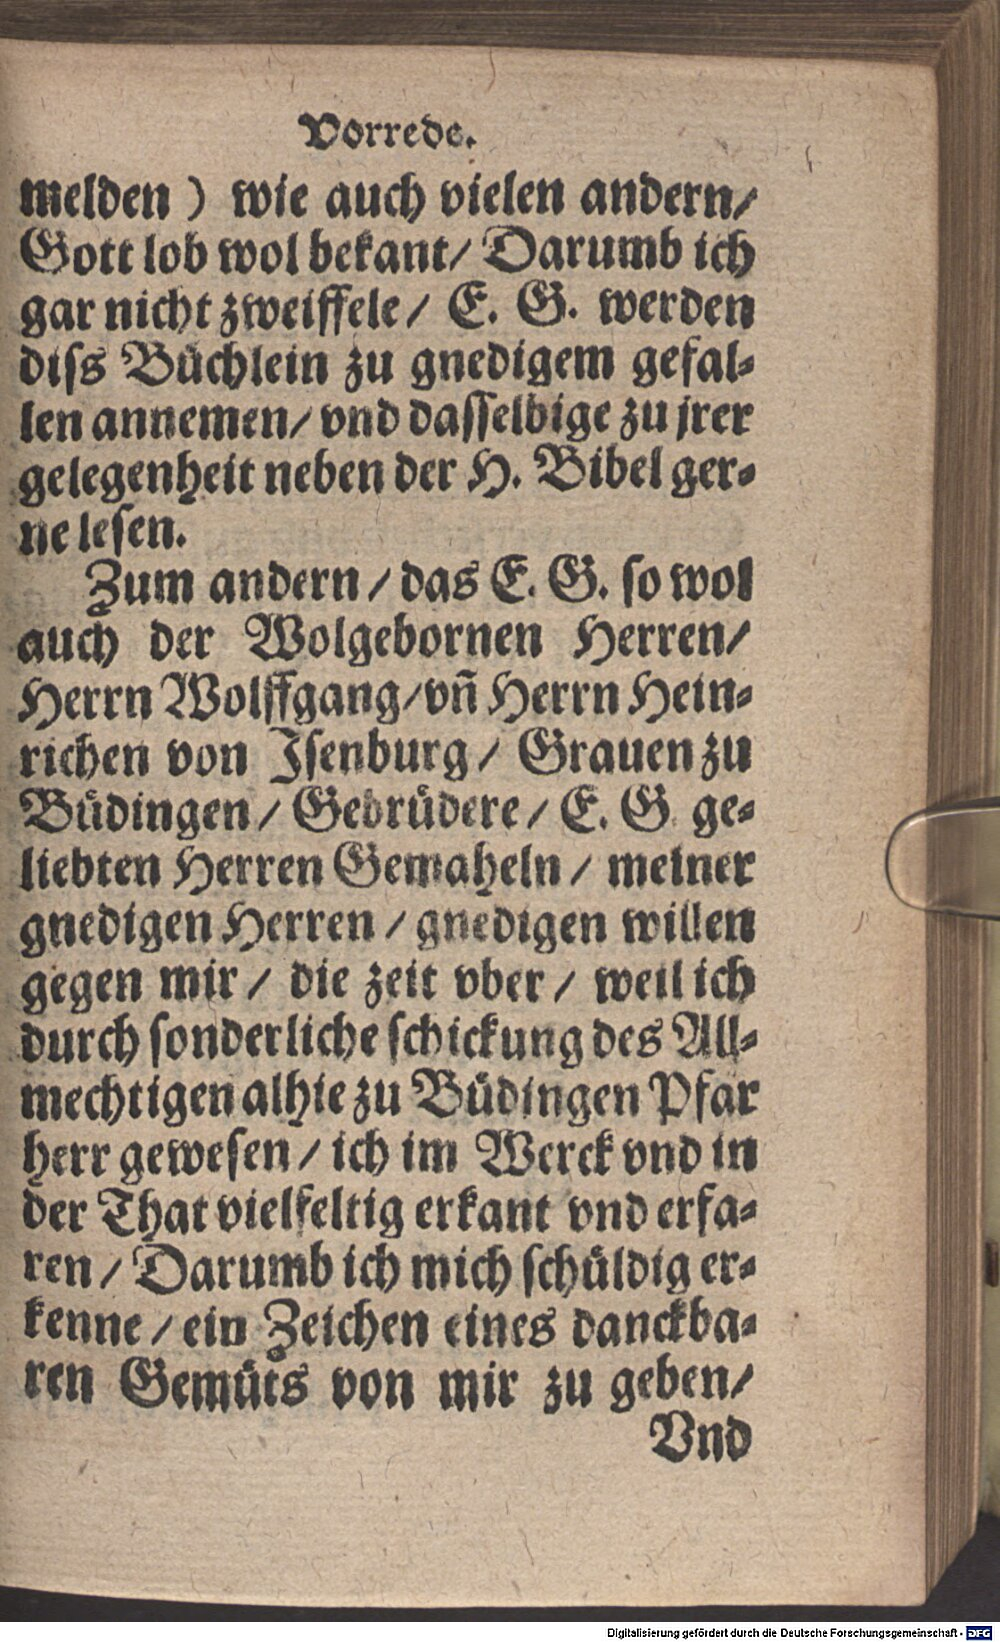 Vorrede.
melden) wie auch vielen andern/
Gott lob wol bekant/ Darumb ich
gar nicht zweiffele/ E. G. werden
diſs Büchlein zu gnedigem gefal-
len annemen/ vnd daſſelbige zu jrer
gelegenheit neben der H. Bibel ger-
ne leſen.
Zum andern/ das E. G. ſo wol
auch der Wolgebornen Herren/
Herrn Wolffgang/ vñ Herrn Hein-
richen von Jſenburg/ Grauen zu
Büdingen/ Gebrüdere/ E. G. ge-
liebten Herren Gemaheln/ meiner
gnedigen Herren/ gnedigen willen
gegen mir/ die zeit vber/ weil ich
durch ſonderliche ſchickung des All-
mechtigen alhie zu Büdingen Pfar
herr geweſen/ ich im Werck vnd in
der That vielfeltig erkant vnd erfa-
ren/ Darumb ich mich ſchüldig er-
kenne/ ein Zeichen eines danckba-
ren Gemüts von mir zu geben/
Vnd
Digitalisierung gefördert durch die Deutsche Forschungsgemeinschaft - DFG